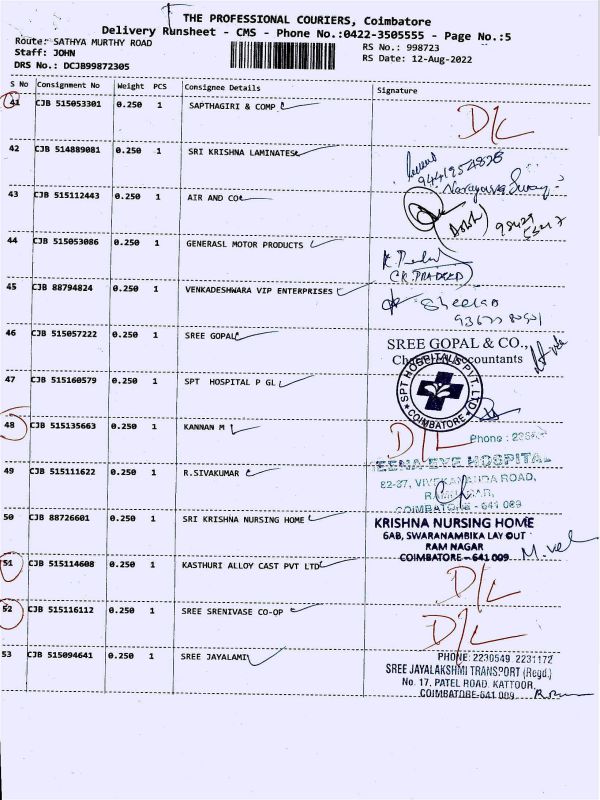 THE PROFESSIONAL COURIERS, Coimbatore
Delivery Runsheet - CMS - Phone No.:0422-3505555 - Page No.:5
Route: SATHYA MURTHY ROAD
RS No.: 998723
Staff: JOHN
RS Date: 12-Aug-2022
DRS No.: DCJB99872305
S No Consignment No Weight PCS Consignee Details Signature
41 CJB 515053301 0.250 1 SAPTHAGIRI & COMP
D/L
42 CJB 514889081 0.250 1 SRI KRISHNA LAMINATES
9441954828
43 CJB 515112443 0.250 1 AIR AND CO
44 CJB 515053086 0.250 1 GENERASL MOTOR PRODUCTS
(K.PRADEEP)
45 CJB 88794824 0.250 1 VENKADESHWARA VIP ENTERPRISES
Sheela
46 CJB 515057222 0.250 1 SREE GOPAL
SREE GOPAL & CO.,
Chartered Accountants
47 CJB 515160579 0.250 1 SPT HOSPITAL P GL
SPT HOSPITALS PVT. LTD
COIMBATORE
48 CJB 515135663 0.250 1 KANNAN M
D/L
Phone :
49 CJB 515111622 0.250 1 R.SIVAKUMAR
EENA EYE HOSPITAL
82-87, VIVEKANANDA ROAD,
COIMBATORE - 641 009
50 CJB 88726601 0.250 1 SRI KRISHNA NURSING HOME
KRISHNA NURSING HOME
6AB, SWARANAMBIKA LAY OUT
RAM NAGAR
COIMBATORE - 641 009
M. vel
51 CJB 515114608 0.250 1 KASTHURI ALLOY CAST PVT LTD
D/L
52 CJB 515116112 0.250 1 SREE SRENIVASE CO-OP
D/L
53 CJB 515094641 0.250 1 SREE JAYALAMI
PHONE: 2230549 2231172
SREE JAYALAKSHMI TRANSPORT (Regd.)
No. 17, PATEL ROAD, KATTOOR,
COIMBATORE-641 009